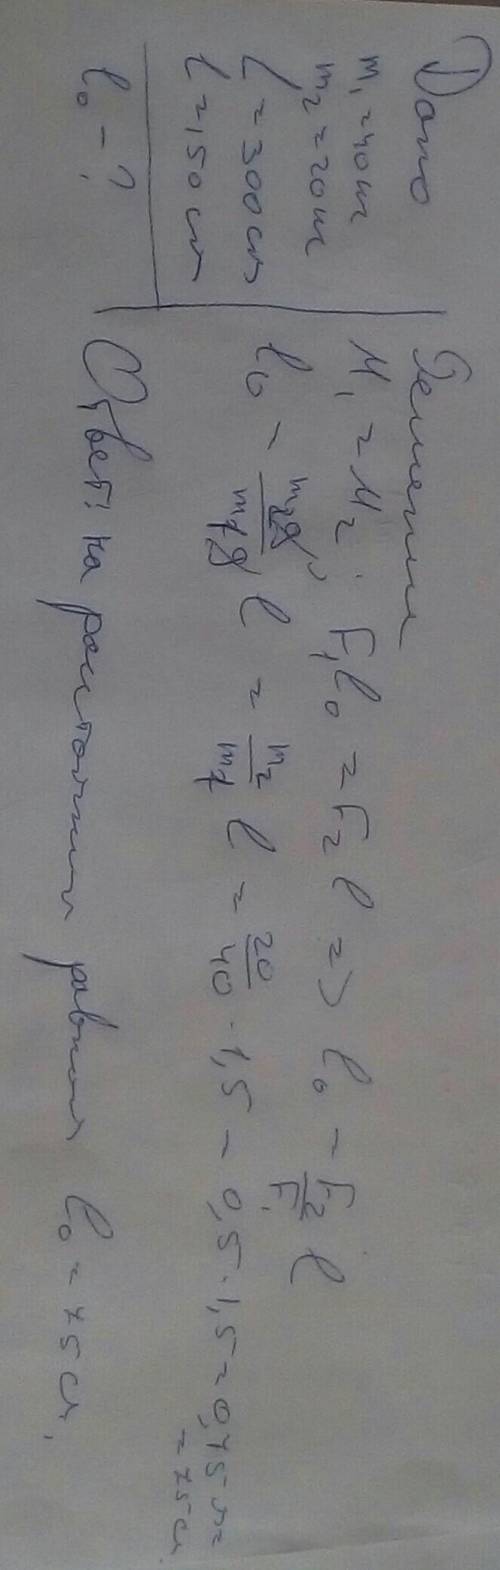 Дано
m₁ = 40 т
m₂ = 20 т
L = 300 см
l = 150 см
l₀ - ?
Решение
M₁ = M₂ : F₁l₀ = F₂l => l₀ = F₂/F₁ l
l₀ = m₂g/m₁g l = m₂/m₁ l = 20/40 · 1,5 = 0,5 · 1,5 = 0,75 м =
= 75 см
Ответ: на расстоянии равном l₀ = 75 см.